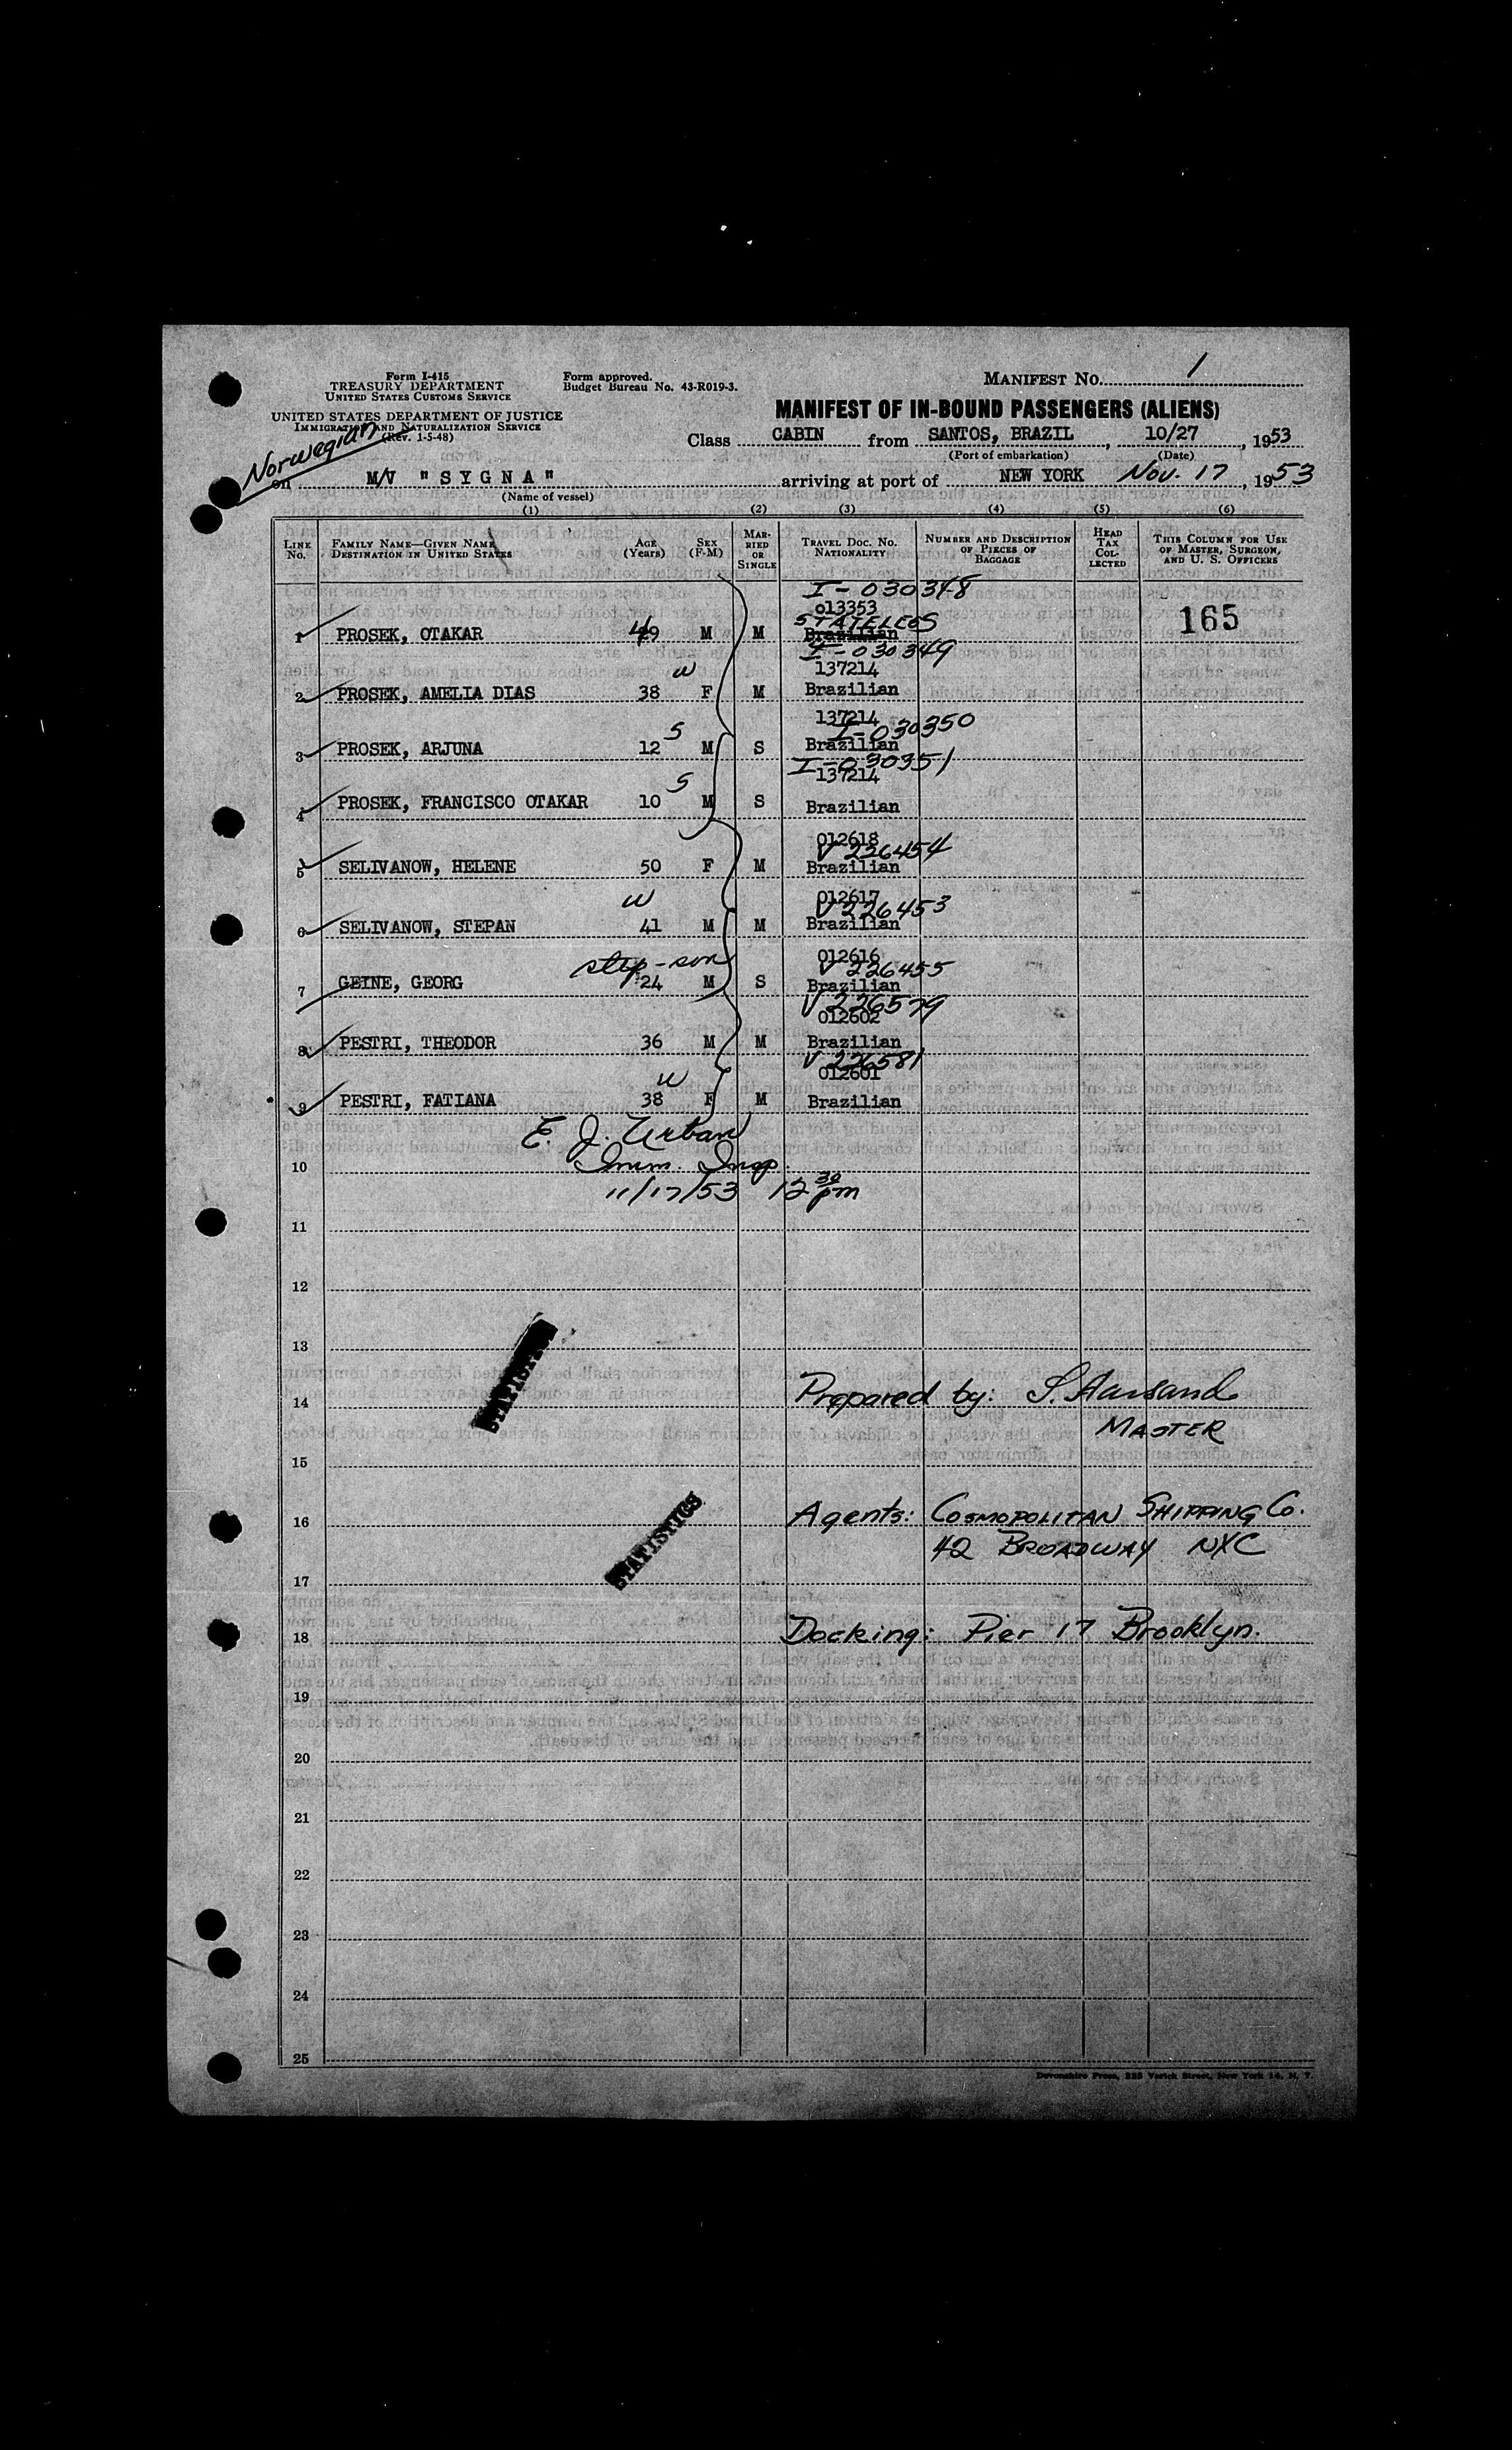 Form I-415
TREASURY DEPARTMENT
UNITED STATES CUSTOMS SERVICE
UNITED STATES DEPARTMENT OF JUSTICE
IMMIGRATION AND NATURALIZATION SERVICE
(Rev. 1-5-48)
Form approved.
Budget Bureau No. 43-R019-3.
MANIFEST NO. 1
MANIFEST OF IN-BOUND PASSENGERS (ALIENS)
Class CABIN from SANTOS, BRAZIL, 10/27, 1953
(Port of embarkation) (Date)
Norwegian
on M/V "SYGNA" arriving at port of NEW YORK Nov. 17, 1953
(Name of vessel)
(1) (2) (3) (4) (5) (6)
LINE NO. FAMILY NAME—GIVEN NAME DESTINATION IN UNITED STATES AGE (Years) SEX (F-M) MARRIED OR SINGLE TRAVEL DOC. NO. NATIONALITY NUMBER AND DESCRIPTION OF PIECES OF BAGGAGE HEAD TAX COLLECTED THIS COLUMN FOR USE OF MASTER, SURGEON, AND U. S. OFFICERS
I-030348
013353
STATELESS
1 PROSEK, OTAKAR 49 M M Brazilian 165
I-030349
w 137214
2 PROSEK, AMELIA DIAS 38 F M Brazilian
137214
S I-030350
3 PROSEK, ARJUNA 12 M S Brazilian
I-030351
S 137214
4 PROSEK, FRANCISCO OTAKAR 10 M S Brazilian
012618
V 226454
5 SELIVANOW, HELENE 50 F M Brazilian
012617
w V 226453
6 SELIVANOW, STEPAN 41 M M Brazilian
012616
step-son V 226455
7 GEINE, GEORG 24 M S Brazilian
V 226579
012602
8 PESTRI, THEODOR 36 M M Brazilian
V 226581
w 012601
9 PESTRI, FATIANA 38 F M Brazilian
E. J. Urban
10 Imm. Insp.
11/17/53 12 30 pm
11
12
13
STATISTICS
14 Prepared by: S. Aarsand
MASTER
15
16 Agents: COSMOPOLITAN SHIPPING Co.
42 BROADWAY NYC
STATISTICS
17
18 Docking: Pier 17 Brooklyn.
19
20
21
22
23
24
25
Devonshire Press, 225 Varick Street, New York 14, N. Y.